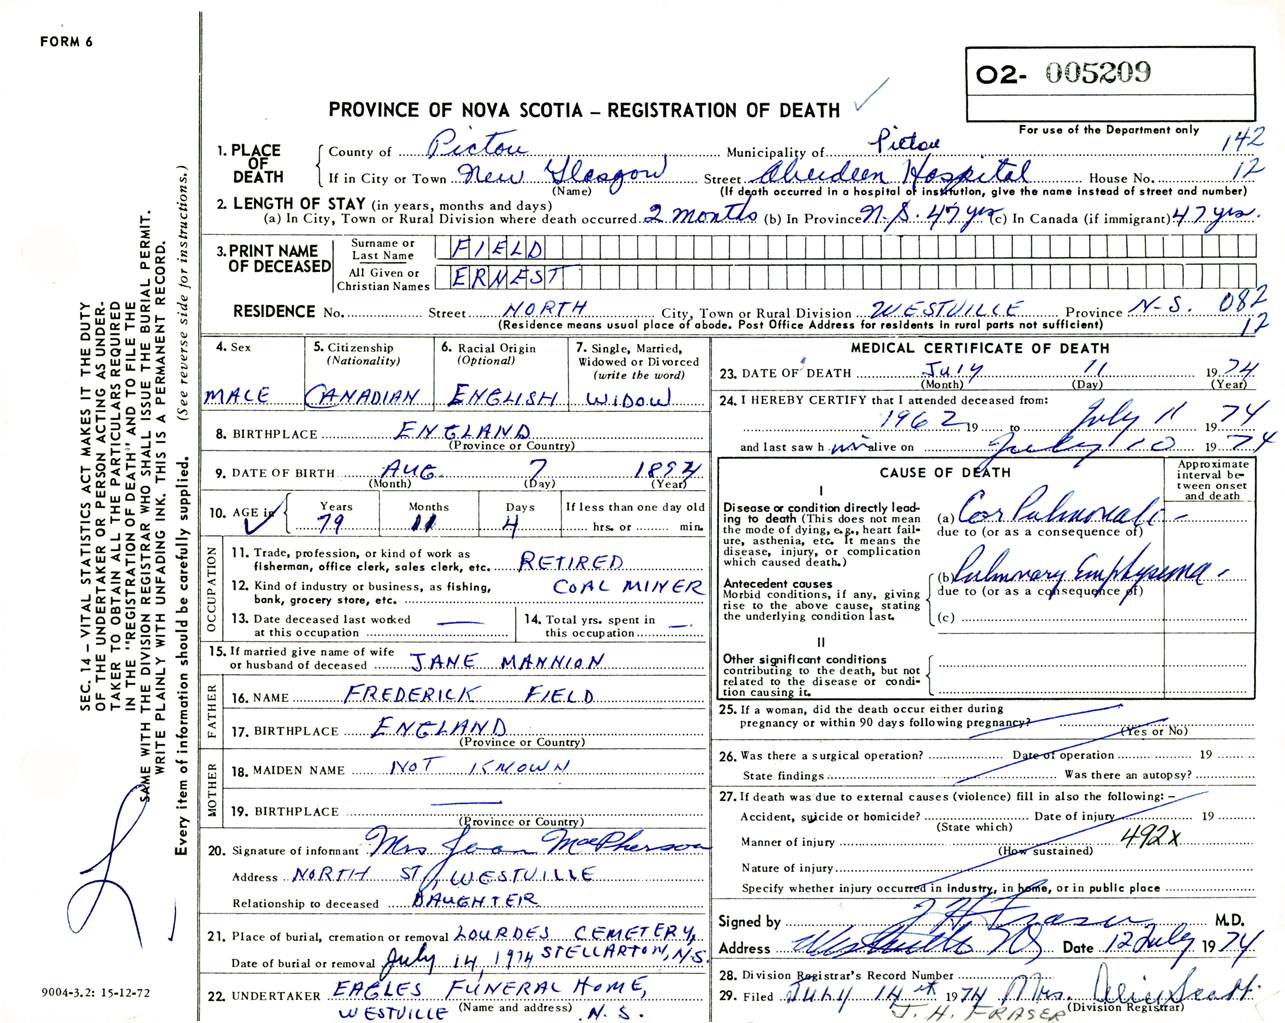 FORM 6
O2- 005209
PROVINCE OF NOVA SCOTIA – REGISTRATION OF DEATH
For use of the Department only
142
12
1. PLACE OF DEATH
County of Pictou Municipality of Pictou
If in City or Town New Glasgow Street Aberdeen Hospital House No.
(Name) (If death occurred in a hospital or institution, give the name instead of street and number)
2. LENGTH OF STAY (in years, months and days)
(a) In City, Town or Rural Division where death occurred 2 months (b) In Province N.S. 47 yrs (c) In Canada (if immigrant) 47 yrs.
3. PRINT NAME OF DECEASED
Surname or Last Name FIELD
All Given or Christian Names ERNEST
RESIDENCE No. Street NORTH City, Town or Rural Division WESTVILLE Province N.S. 082
(Residence means usual place of abode. Post Office Address for residents in rural parts not sufficient) 12
4. Sex MALE
5. Citizenship (Nationality) CANADIAN
6. Racial Origin (Optional) ENGLISH
7. Single, Married, Widowed or Divorced (write the word) WIDOW
8. BIRTHPLACE ENGLAND
(Province or Country)
9. DATE OF BIRTH AUG. 7 1894
(Month) (Day) (Year)
10. AGE in Years 79 Months 11 Days 4 If less than one day old hrs. or min.
OCCUPATION
11. Trade, profession, or kind of work as fisherman, office clerk, sales clerk, etc. RETIRED
12. Kind of industry or business, as fishing, bank, grocery store, etc. COAL MINER
13. Date deceased last worked at this occupation
14. Total yrs. spent in this occupation
15. If married give name of wife or husband of deceased JANE MANNION
FATHER
16. NAME FREDERICK FIELD
17. BIRTHPLACE ENGLAND
(Province or Country)
MOTHER
18. MAIDEN NAME NOT KNOWN
19. BIRTHPLACE
(Province or Country)
20. Signature of informant Mrs. Jean MacPherson
Address NORTH ST, WESTVILLE
Relationship to deceased DAUGHTER
21. Place of burial, cremation or removal LOURDES CEMETERY, STELLARTON, N.S.
Date of burial or removal July 14, 1974
22. UNDERTAKER EAGLES FUNERAL HOME,
WESTVILLE (Name and address) N.S.
MEDICAL CERTIFICATE OF DEATH
23. DATE OF DEATH July 11 1974
(Month) (Day) (Year)
24. I HEREBY CERTIFY that I attended deceased from:
1962 19 to July 11 1974
and last saw h im alive on July 10 1974
CAUSE OF DEATH
Approximate interval between onset and death
I
Disease or condition directly leading to death (This does not mean the mode of dying, e.g., heart failure, asthenia, etc. It means the disease, injury, or complication which caused death.)
(a) Cor Pulmonale -
due to (or as a consequence of)
Antecedent causes
Morbid conditions, if any, giving rise to the above cause, stating the underlying condition last.
(b) Pulmonary Emphysema -
due to (or as a consequence of)
(c)
II
Other significant conditions
contributing to the death, but not related to the disease or condition causing it.
25. If a woman, did the death occur either during
pregnancy or within 90 days following pregnancy?
(Yes or No)
26. Was there a surgical operation? Date of operation 19
State findings Was there an autopsy?
27. If death was due to external causes (violence) fill in also the following: –
Accident, suicide or homicide? Date of injury 19
(State which)
Manner of injury 492x
(How sustained)
Nature of injury
Specify whether injury occurred in industry, in home, or in public place
Signed by J H Fraser M.D.
Address Westville NS Date 12 July 1974
28. Division Registrar's Record Number
29. Filed July 14th 1974 Mrs. Alice Scott
J. H. FRASER (Division Registrar)
SEC. 14 – VITAL STATISTICS ACT MAKES IT THE DUTY
OF THE UNDERTAKER OR PERSON ACTING AS UNDER-
TAKER TO OBTAIN ALL THE PARTICULARS REQUIRED
IN THE "REGISTRATION OF DEATH" AND TO FILE THE
SAME WITH THE DIVISION REGISTRAR WHO SHALL ISSUE THE BURIAL PERMIT.
WRITE PLAINLY WITH UNFADING INK. THIS IS A PERMANENT RECORD.
Every item of information should be carefully supplied. (See reverse side for instructions.)
9004-3.2: 15-12-72